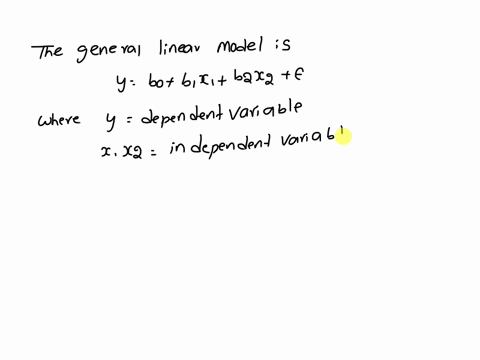 The general linear model is
y = b0 + b1x1 + b2x2 + ε
where y = dependent variable
x, x2 = independent variabl